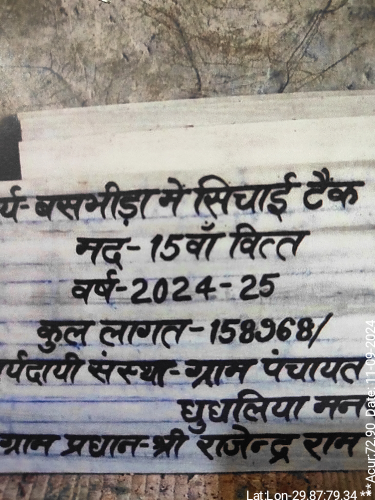 र्य- बसभीड़ा मे सिचाई टैंक
मद- 15वाँ वित्त
वर्ष-2024-25
कुल लागत-158968/
र्यदायी संस्था- ग्राम पंचायत
घुघलिया मन
ग्राम प्रधान-श्री राजेन्द्र राम
Lat:Lon-29.87:79.34 **
**Acur:72.90 Date:11-09-2024